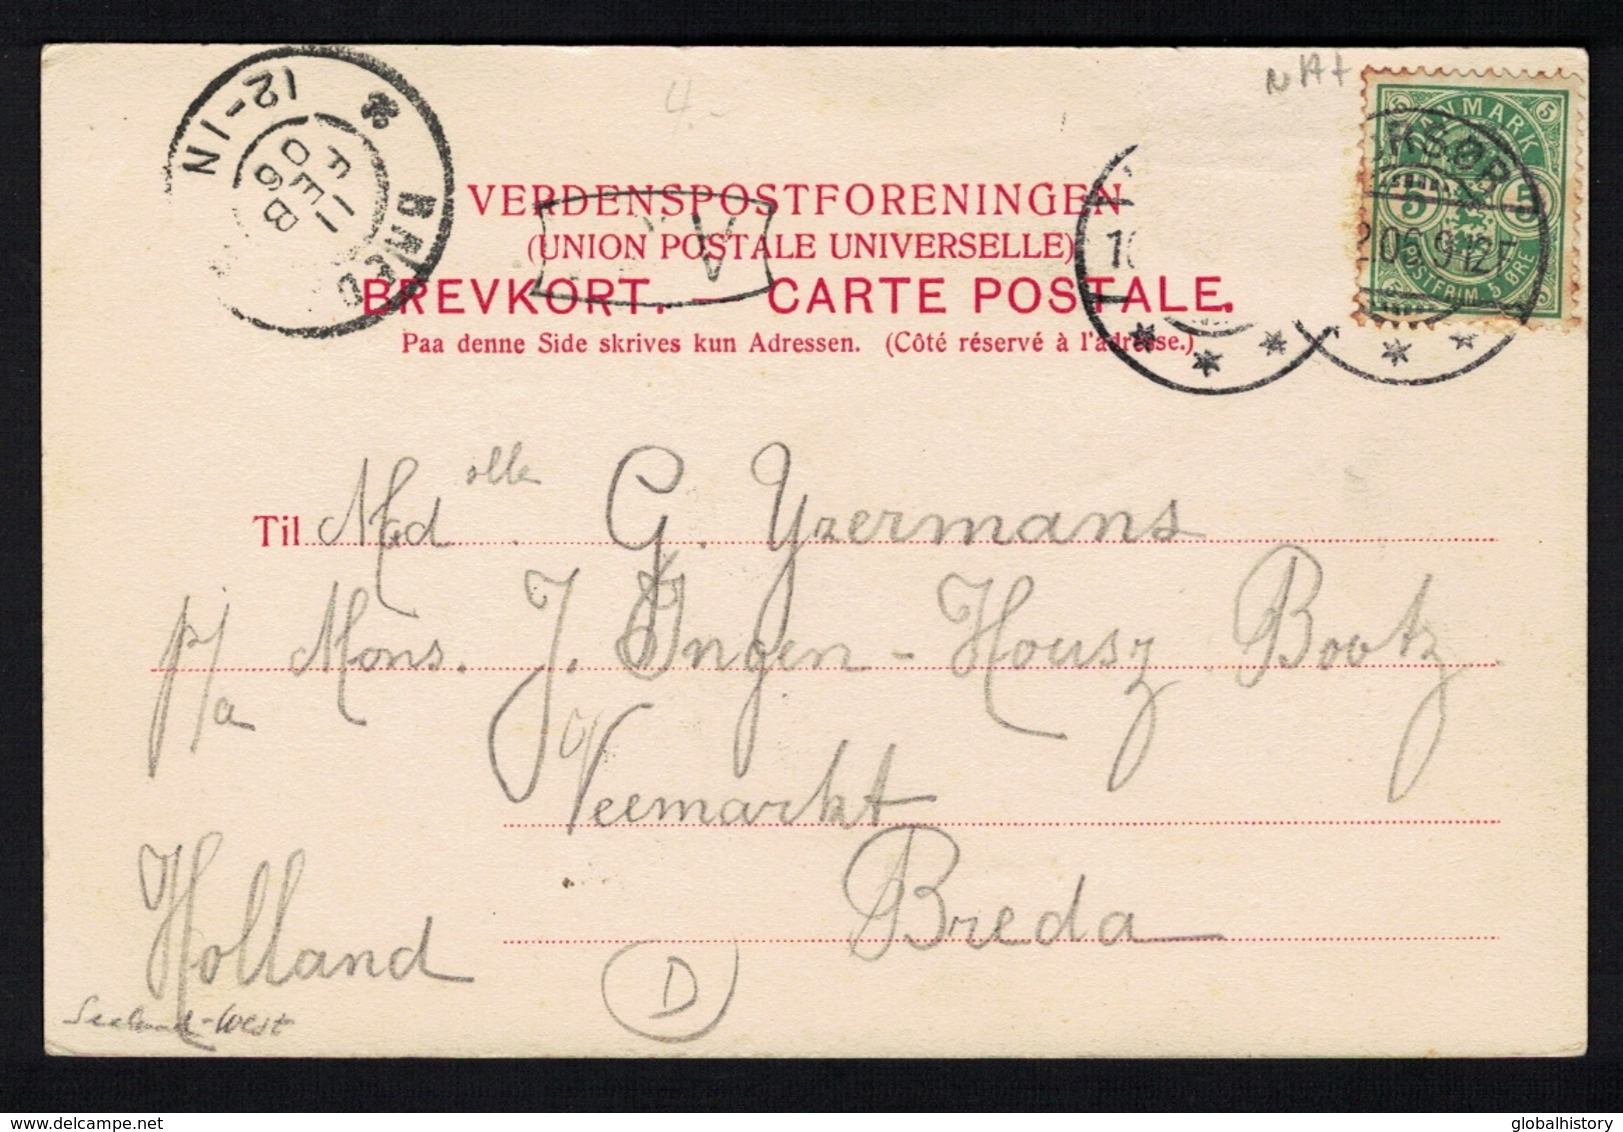 4.-
12-1N
BRED
11
FEB
06
VERDENSPOSTFORENINGEN
(UNION POSTALE UNIVERSELLE)
BREVKORT. — CARTE POSTALE.
Paa denne Side skrives kun Adressen. (Côté réservé à l'adresse.)
KSØR
2.06 9-12F
DANMARK
5 5
POSTFRIM. 5 ØRE
Til Madolle G. Yzermans
p/a Mons. J. Ingen-Housz Bootz
Veemarkt
Breda
Holland
D
Seeland-West
globalhistory